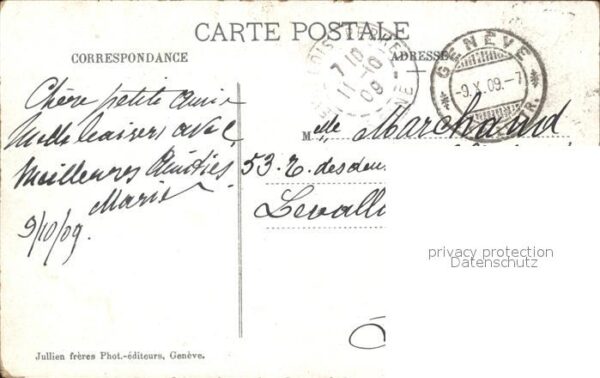 CARTE POSTALE
CORRESPONDANCE
ADRESSE
GENÈVE
-9.X.09.-7
7 10
11-10
09
Chère petite amie
Mille baisers avec
Meilleures Amitiés
Marie
9/10/09.
Mlle Marchand
53. R. des deux
Levall
privacy protection
Datenschutz
Jullien frères Phot.-éditeurs, Genève.